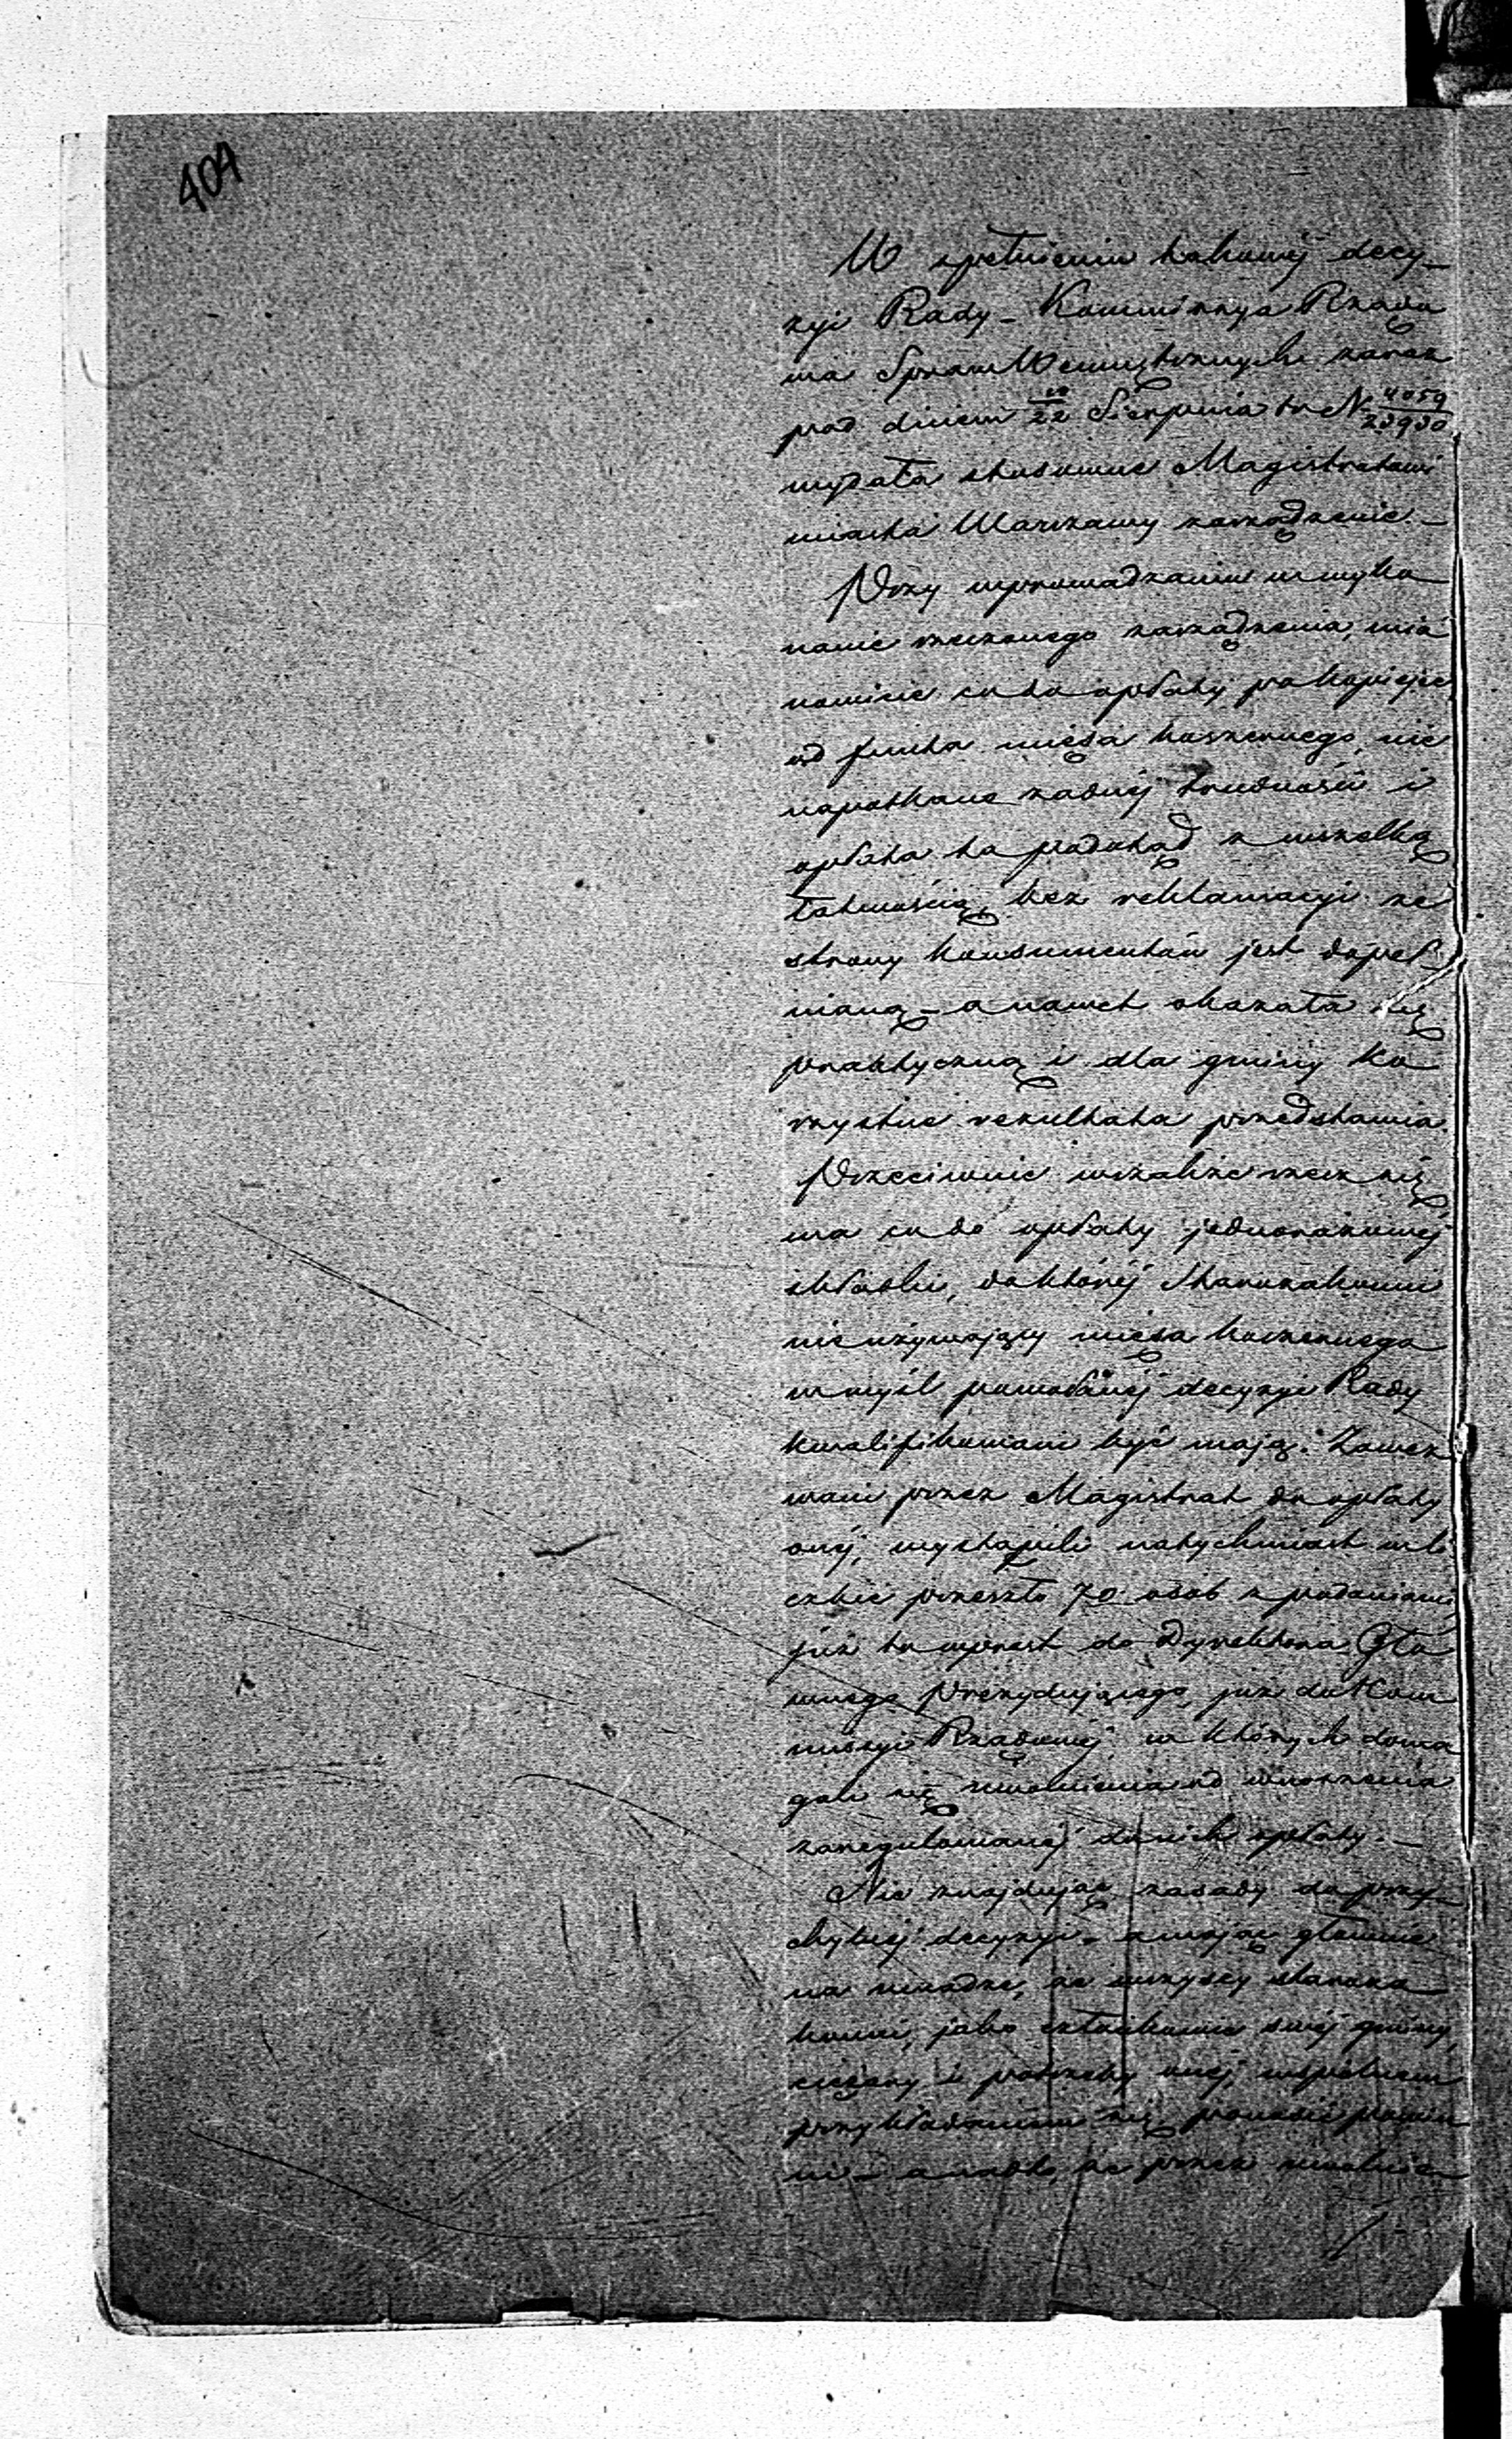 404
W spełnieniu takowéj decy-
zyi Rady – Kommissya Rządo
wa Spraw Wewnętrznych zaraz
pod dniem 10/22 Sierpnia tr N 4059/23930
wydała stosowne Magistratowi
miasta Warszawy zarządzenie. –
Przy wprowadzaniu w wyko
nanie rzeczonego zarządzenia, mia
nowicie co do opłaty po kopiejce
od funta mięsa koszernego, nie
napotkano żadnéj trudności i
opłata ta podtąd z wszelką
łatwością, bez reklamacyi ze
strony konsumentów jest dopeł-
nianą – a nawet okazała się
praktyczną i dla gminy ko
rzystne rezultata przedstawia.
Przeciwnie wszakże rzecz się
ma co do opłaty jednorazowéj
składki, do któréj Starozakonni
nieużywający mięsa koszernego
w myśl powołanéj decyzyi Rady
kwalifikowani być mają. Zawez
wani przez Magistrat do opłaty
onéj, wystąpili natychmiast w li
czbie przeszło 70 osób z podaniami
już to wprost do Dyrektora Głó
wnego Prezydującego, już do Kom
missyi Rządowéj, w których doma
gali się uwolnienia od wnoszenia
zaregulowanéj do nich opłaty. –
Nie znajdując zasady do przy-
chylnéj decyzyi – a mając głównie
na uwadze, że wszyscy staroza
konni, jako członkowie swéj gminy,
ciężary i potrzeby onéj, wspólnem
przykładaniem się ponosić powin
ni – a nadto, że przez uwolnie-